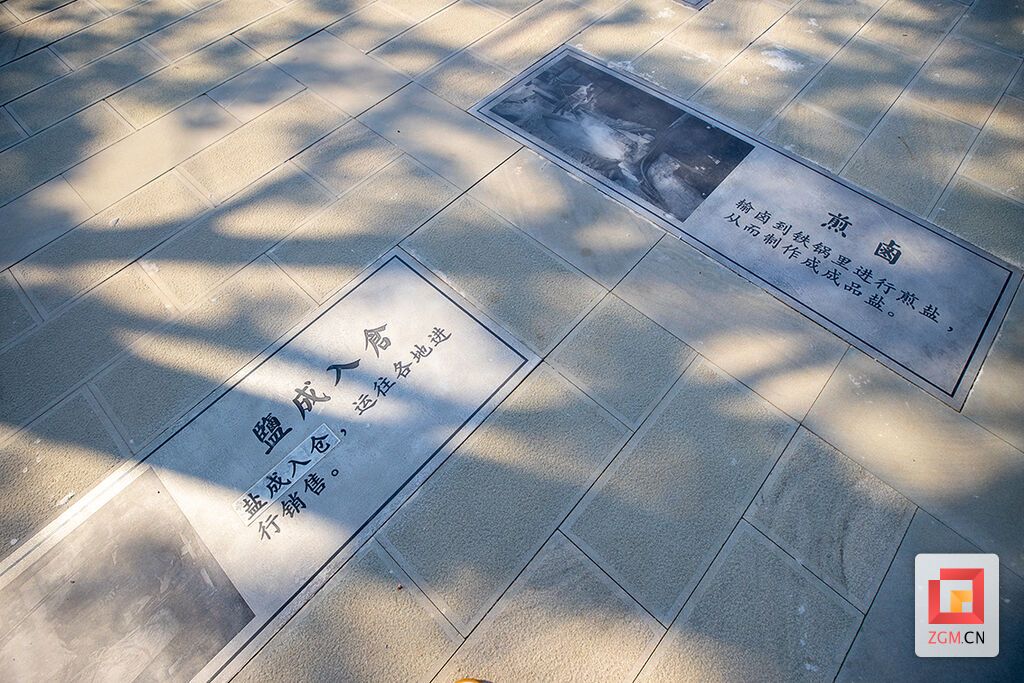 煎鹵
输卤到铁锅里进行煎盐，
从而制作成成品盐。
鹽成入倉
盐成入仓，运往各地进
行销售。
ZGM.CN